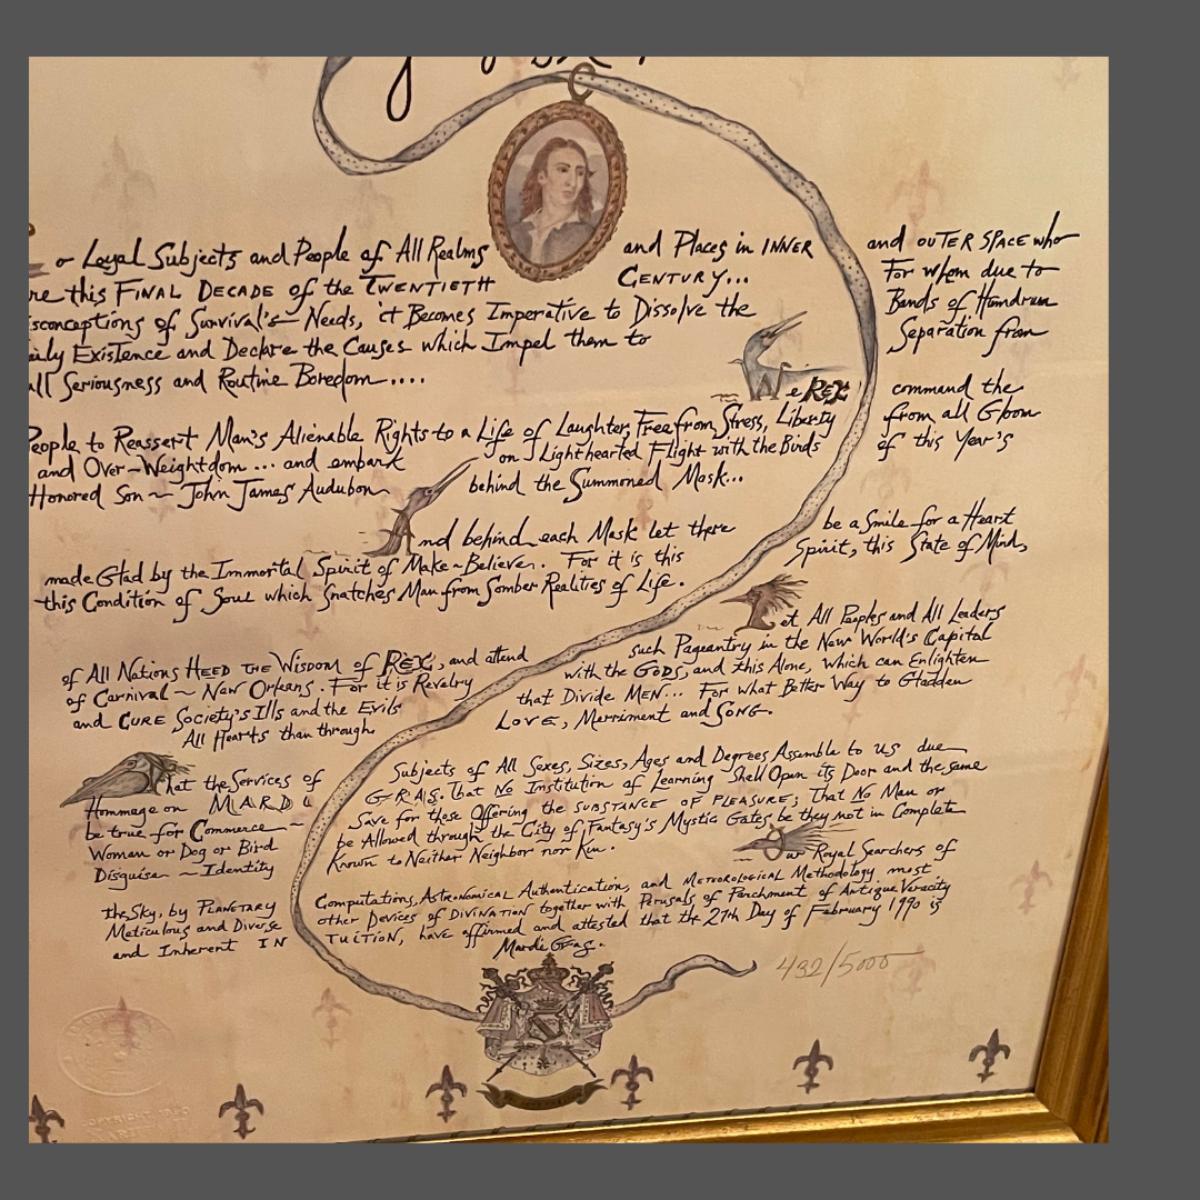 or Loyal Subjects and People of All Realms and Places in INNER and OUTER SPACE who
this FINAL DECADE of the TWENTIETH CENTURY... For whom due to
of Survival's Needs, it Becomes Imperative to Dissolve the Bands of Humdrum
Existence and Declare the Causes which Impel them to Separation from
Seriousness and Routine Boredom....
e REX command the
People to Reassert Man's Alienable Rights to a Life of Laughter, Free from Stress, Liberty from all Gloom
and Over-Weightdom... and embark on Lighthearted Flight with the Birds of this Year's
Honored Son ~ John James Audubon behind the Summoned Mask...
And behind each Mask let there be a Smile for a Heart
made Glad by the Immortal Spirit of Make-Believe. For it is this Spirit, this State of Mind,
this Condition of Soul which Snatches Man from Somber Realities of Life.
Let All Peoples and All Leaders
of All Nations HEED THE WISDOM of REX, and attend such Pageantry in the New World's Capital
of Carnival ~ New Orleans. For it is Revelry with the GODS, and this Alone, which can Enlighten
and CURE Society's Ills and the Evils that Divide MEN... For what Better Way to Gladden
All Hearts than through LOVE, Merriment and SONG.
hat the Services of Subjects of All Sexes, Sizes, Ages and Degrees Assemble to us due
Hommage on MARDI GRAS. That No Institution of Learning Shall Open its Door and the same
be true for Commerce ~ Save for those Offering the SUBSTANCE OF PLEASURE; That No Man or
Woman or Dog or Bird be Allowed through the City of Fantasy's Mystic Gates be they not in Complete
Disguise ~ Identity Known to Neither Neighbor nor Kin.
Our Royal Searchers of
the Sky, by PLANETARY Computations, ASTRONOMICAL Authentication, and METEOROLOGICAL Methodology, most
Meticulous and Diverse other Devices of DIVINATION together with Perusals of Parchment of Antique Veracity
and Inherent INTUITION, have affirmed and attested that the 27th Day of February 1990 is
Mardi Gras.
432/5000
COPYRIGHT